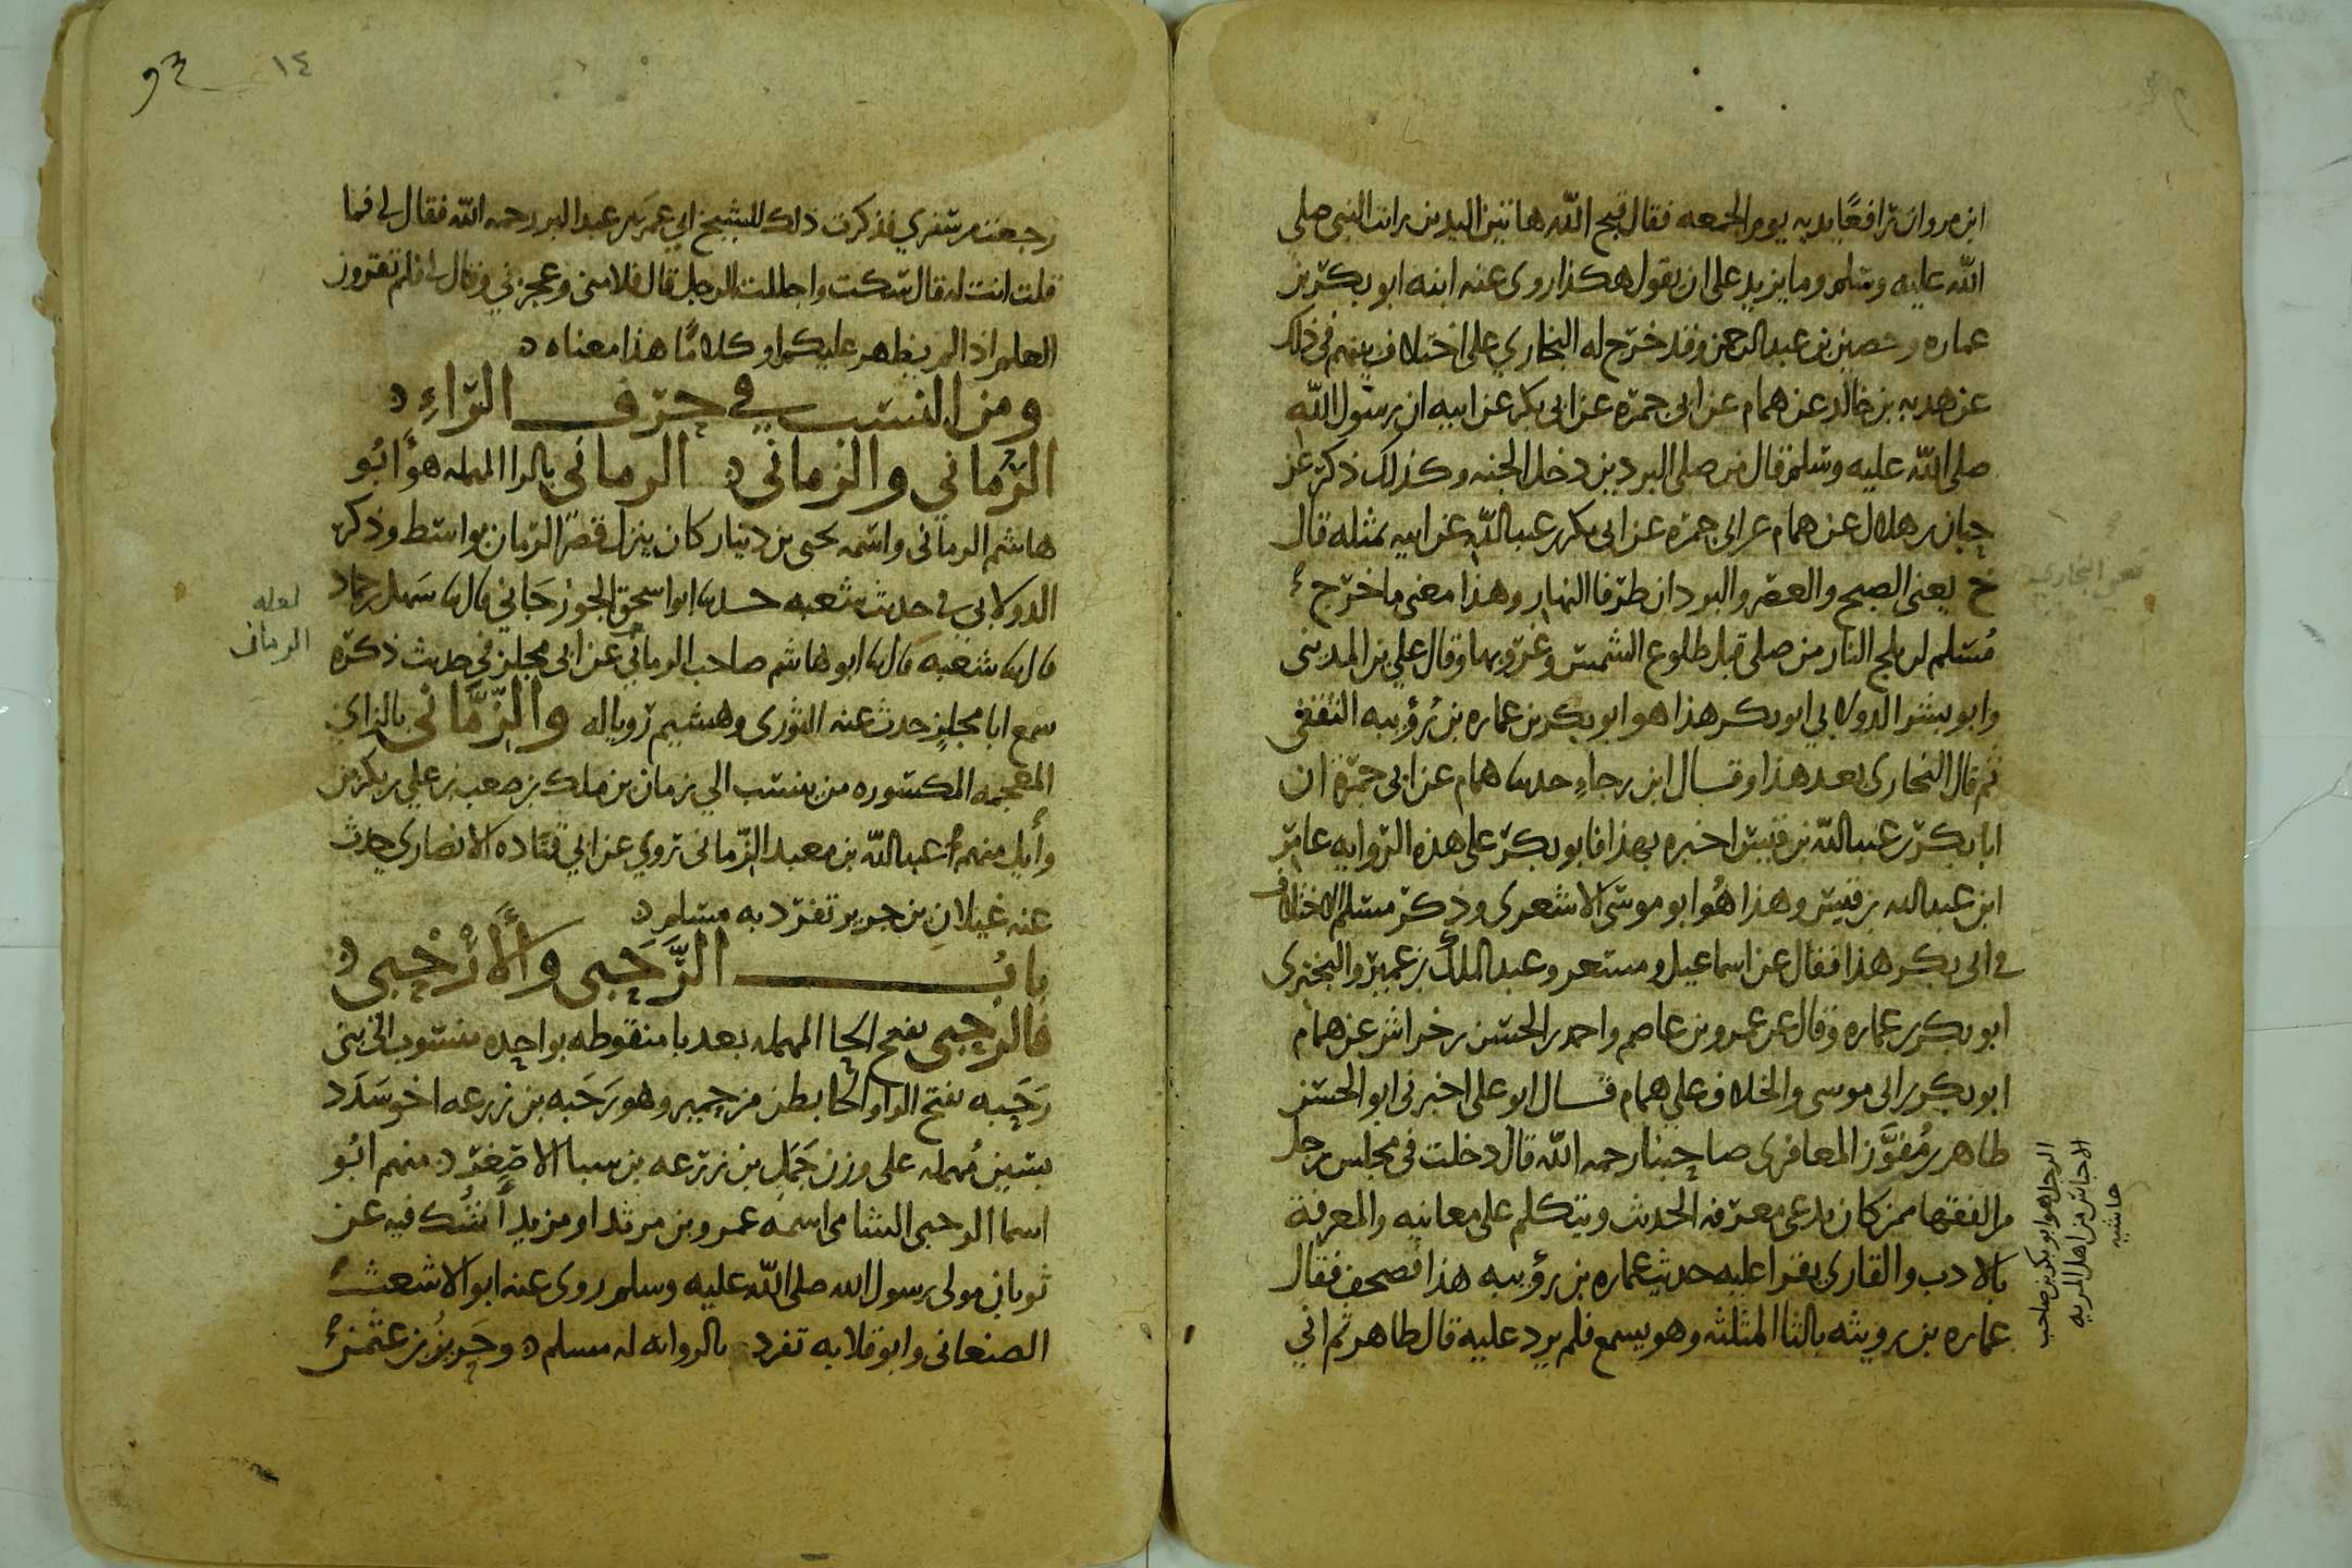 ابن مروان رافعًا يديه يوم الجمعه فقال قبح الله هاتين اليدين رايت النبي صلى
الله عليه وسلم وما يزيد على ان يقول هكذا روى عنه ابنه ابو بكر بن
عماره وحصين بن عبد الرحمن وقد خرّج له البخاري على اختلاف بينهم في ذلك
عن هدبه بن خالد عن همام عن ابى جمره عن ابى بكر عن ابيه ان رسول الله
صلى الله عليه وسلم قال من صلى البردين دخل الجنه وكذلك ذكر عن
حبان بن هلال عن همام عن ابى جمره عن ابى بكر بن عبد الله عن ابيه بمثله قال
خ يعنى الصبح والعصر والبردان طرفا النهار وهذا معنى ما خرّج
مُسلم لن يلج النار من صلى قبل طلوع الشمس وغروبها وقال علي بن المدينى
وابو بشر الدولابي ابو بكر هذا هو ابو بكر بن عماره بن رُؤيبه الثقفى
ثم قال البخارى بعد هذا وقال ابن رجاءٍ حدثنا همام عن ابى جمرة ان
ابا بكر بن عبد الله بن قيس اخبره بهذا فابو بكر على هذه الروايه عامر
ابن عبد الله بن قيس وهذا هُو ابو موسى الاشعرى وذكر مسلم الاختلاف
فى ابى بكر هذا فقال عن اسماعيل ومسعر وعبد الملك بن عمير والبخترى
ابو بكر بن عماره وقال عن عمرو بن عاصم واحمد بن الحسن بن خراش عن همام
ابو بكر بن ابى موسى والخلاف على همام قال ابو على اخبرنى ابو الحسن
طاهر بن مُفوَّز المعافرى صاحبنا رحمه الله قال دخلت في مجلس رجل
من الفقها ممن كان يدعى معرفه الحديث ويتكلم على معانيه والمعرفة
بالادب والقارى يقرا عليه حديث عماره بن رؤيبه هذا فصحف فقال
عماره بن رويثه بالثا المثلثه وهو يسمع فلم يرد عليه قال طاهر ثم اني
الرجل هو ابو بكر بن صاحب
الاحباس من اهل المريه
حاشيه
٩٣
١٤
رجعت من سفري فذكرت ذلك للشيخ ابي عمر بن عبد البر رحمه الله فقال لى فما
قلت انت له قال سكت واجللت الرجل قال فلامنى وعجزني وقال لى فلم تقرون
العلم اذا لم يظهر عليكم او كلامًا هذا معناه
ومن النسب في حرف الراءِ
الرّماني والزماني الرمانى بالرا المهمله هو ابُو
هاشم الرمانى واسمه يحيى بن دينار كان ينزل قصر الرمان بواسط وذكر
الدولابي في حديث شعبه حدثنا ابو اسحق الجوزجَاني قال نا سَهل بن حماد
قال نا شعبه قال نا ابو هاشم صاحب الرماني عن ابى مجلز في حديث ذكره
سمع ابا مجلز حدث عنه الثورى وهشيم رويا له والزّمّاني بالزاي
المعجمه المكسوره من ينسب الى زمان بن ملك بن صعب بن علي بن بكر بن
وايل منهم عبد الله بن معبد الزّمانى روي عن ابي قتاده الانصاري حدث
عنه غيلان بن جرير تفرّد به مسلم
بابُ الرَّحَبى والأرْحبي
فالرحبى بفتح الحا المهمله بعد با منقوطه بواحده منسوب الى بنى
رَحَبه بفتح الرا والحا بطن من حمير وهو رَحَبه بن زرعه اخو سَدَد
بسين مُهمله على وزن جَمَل بن زرعه بن سبا الاصغر منهم ابُو
اسما الرحبى الشامى اسمه عمرو بن مرثد او مزيد أشك فيه عن
ثوبان مولى رسول الله صلى الله عليه وسلم روى عنه ابو الاشعث
الصنعانى وابو قلابه تفرد بالروايه له مسلم وحَريزُ بن عثمن
لعله
الرمان